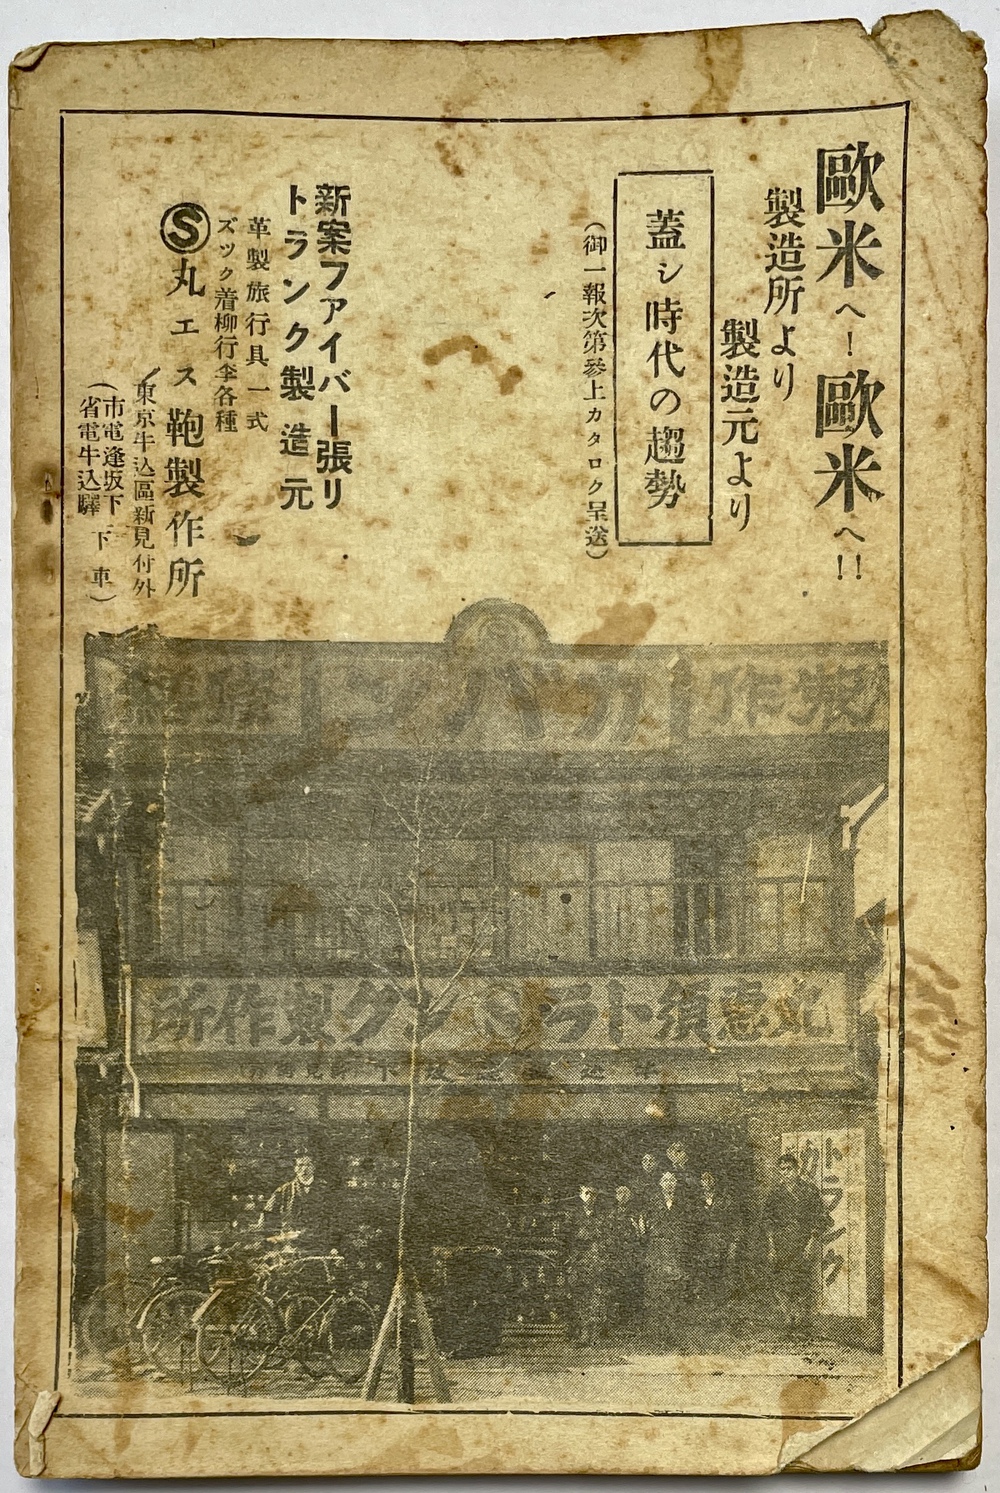 歐米へ！歐米へ!!
製造所より
製造元より
蓋シ時代の趨勢
（御一報次第參上カタログ呈送）
新案ファイバー張リ
トランク製造元
革製旅行具一式
ズック着柳行李各種
Ⓢ丸エス鞄製作所
東京牛込區新見付外
（市電逢坂下
省電牛込驛 下車）
製作 カバン 修繕
丸惠須トランク製作所
トランク